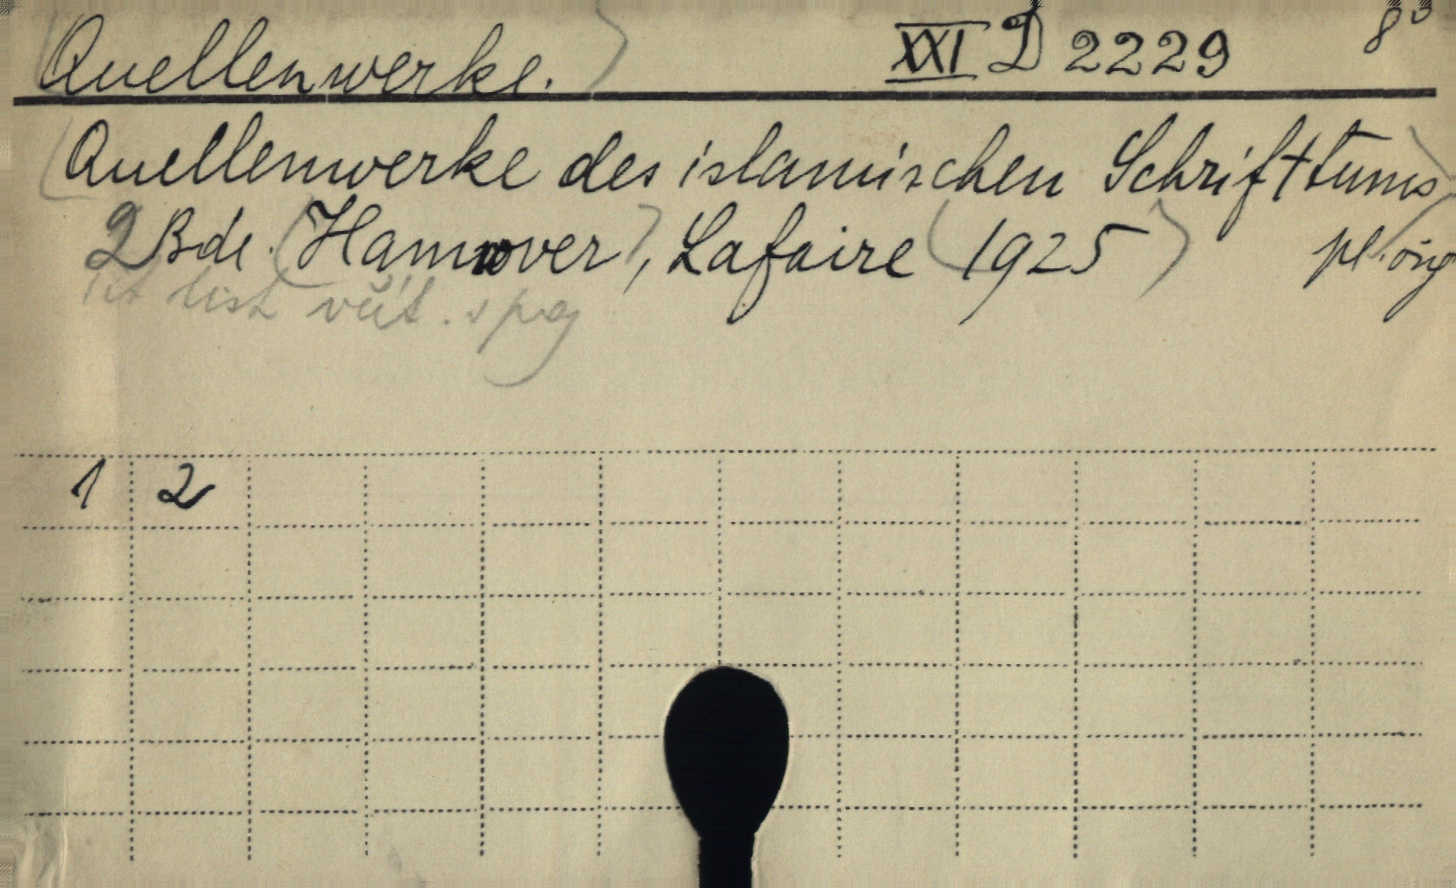 (Quellenwerke.) XXI D 2229 8°
(Quellenwerke des islamischen Schrifttums)
2 Bde. (Hannover), Lafaire (1925) pl. orig
tit list včít. spg
1 2